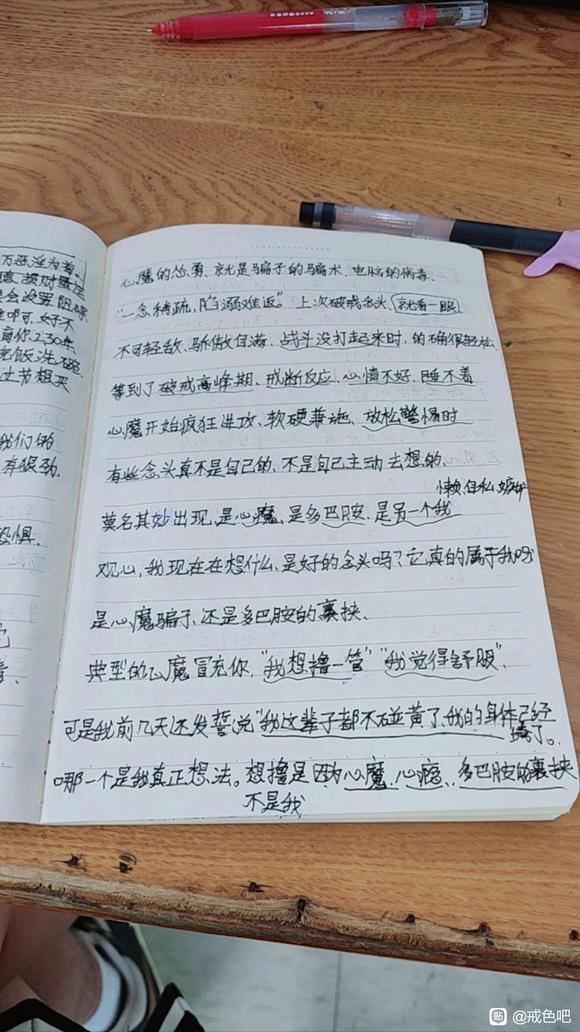 万恶淫为首
我们的
恐惧
心魔的怂恿、就是骗子的骗术、电脑的病毒、
"一念稀疏，陷溺难返" 上次破戒念头、就看一眼
不可轻敌、骄傲自满、战斗没打起来时、的确很轻松
等到了破戒高峰期、戒断反应、心情不好、睡不着
心魔开始疯狂进攻、软硬兼施、放松警惕时
有些念头真不是自己的、不是自己主动去想的、
懒、自私、嫉妒
莫名其妙出现、是心魔、是多巴胺、是另一个我
观心、我现在在想什么、是好的念头吗？它真的属于我吗
是心魔骗子、还是多巴胺的裹挟、
典型的心魔冒充你、"我想撸一管" "我觉得舒服"、
可是我前几天还发誓说"我这辈子都不碰黄了、我的身体已经
哪一个是我真正想法。想撸是因为心魔、心瘾、多巴胺的裹挟
不是我
贴 @戒色吧